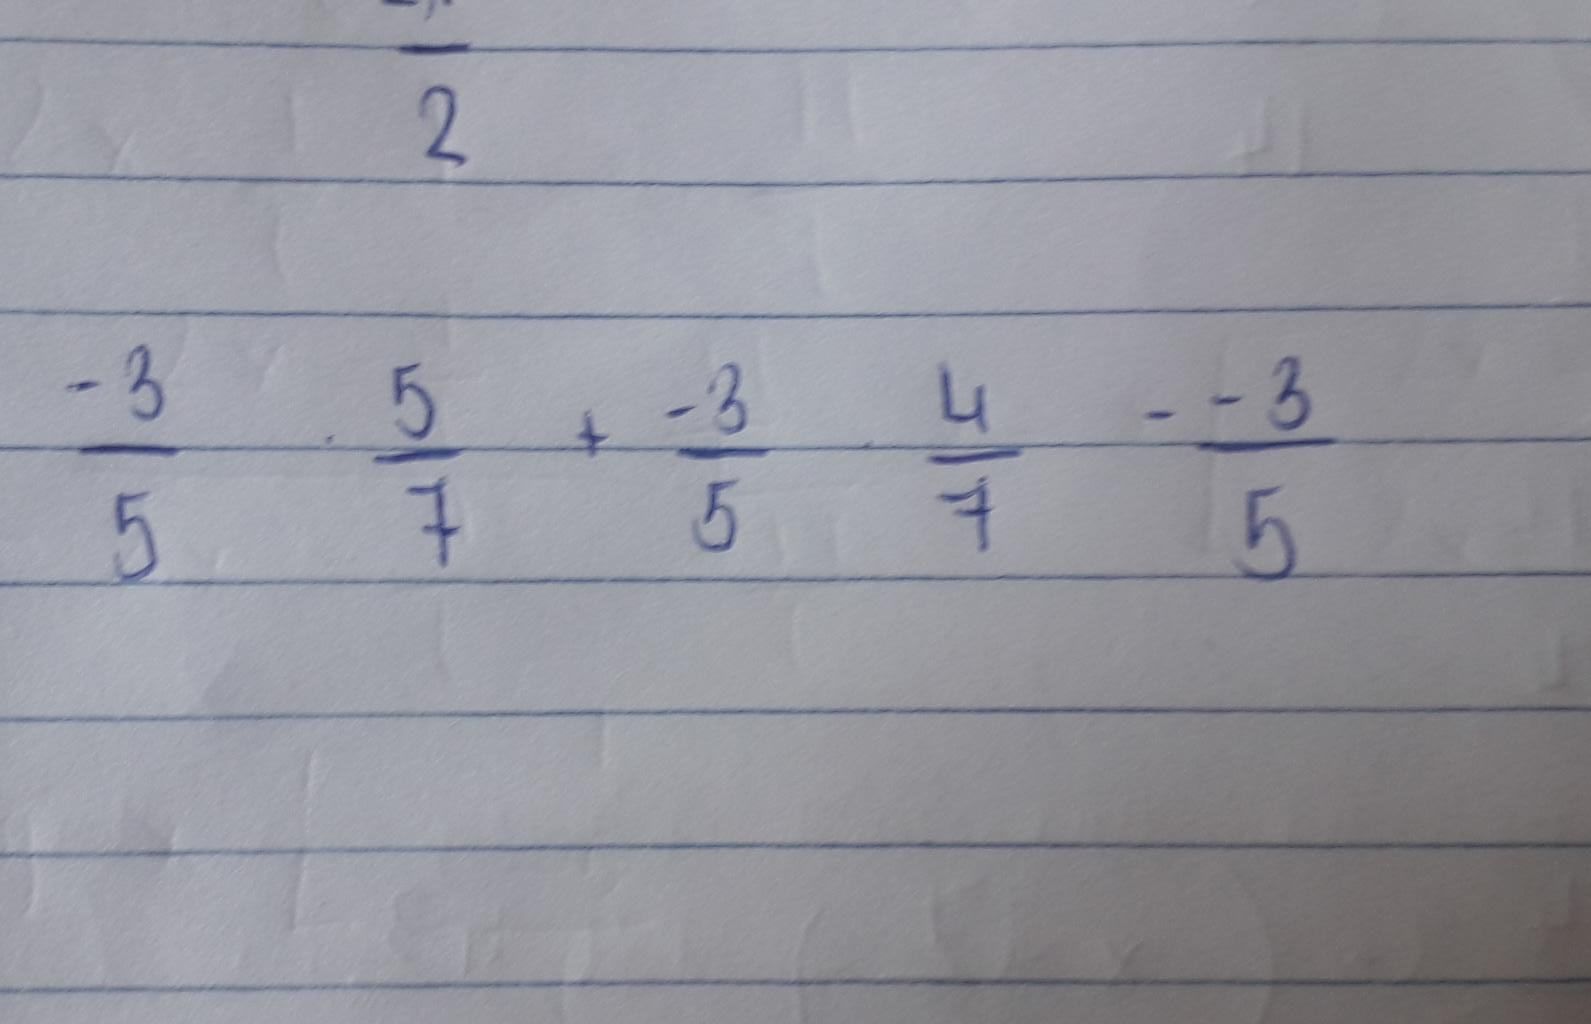 2
-3/5 · 5/7 + -3/5 · 4/7 - -3/5